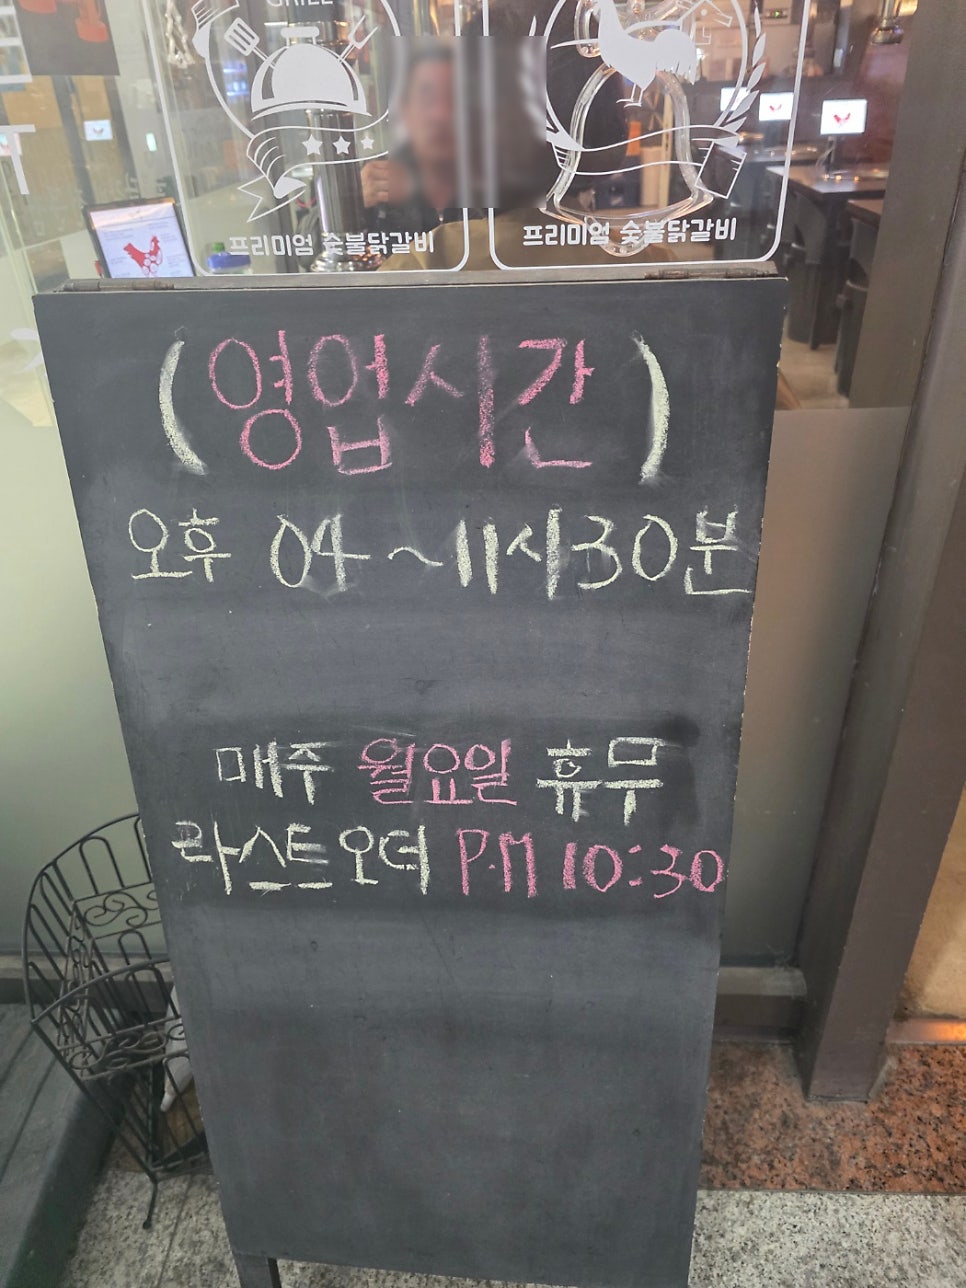 GRILL
프리미엄 숯불닭갈비
프리미엄 숯불닭갈비
(영업시간)
오후 04~11시30분
매주 월요일 휴무
라스트오더 P.M 10:30